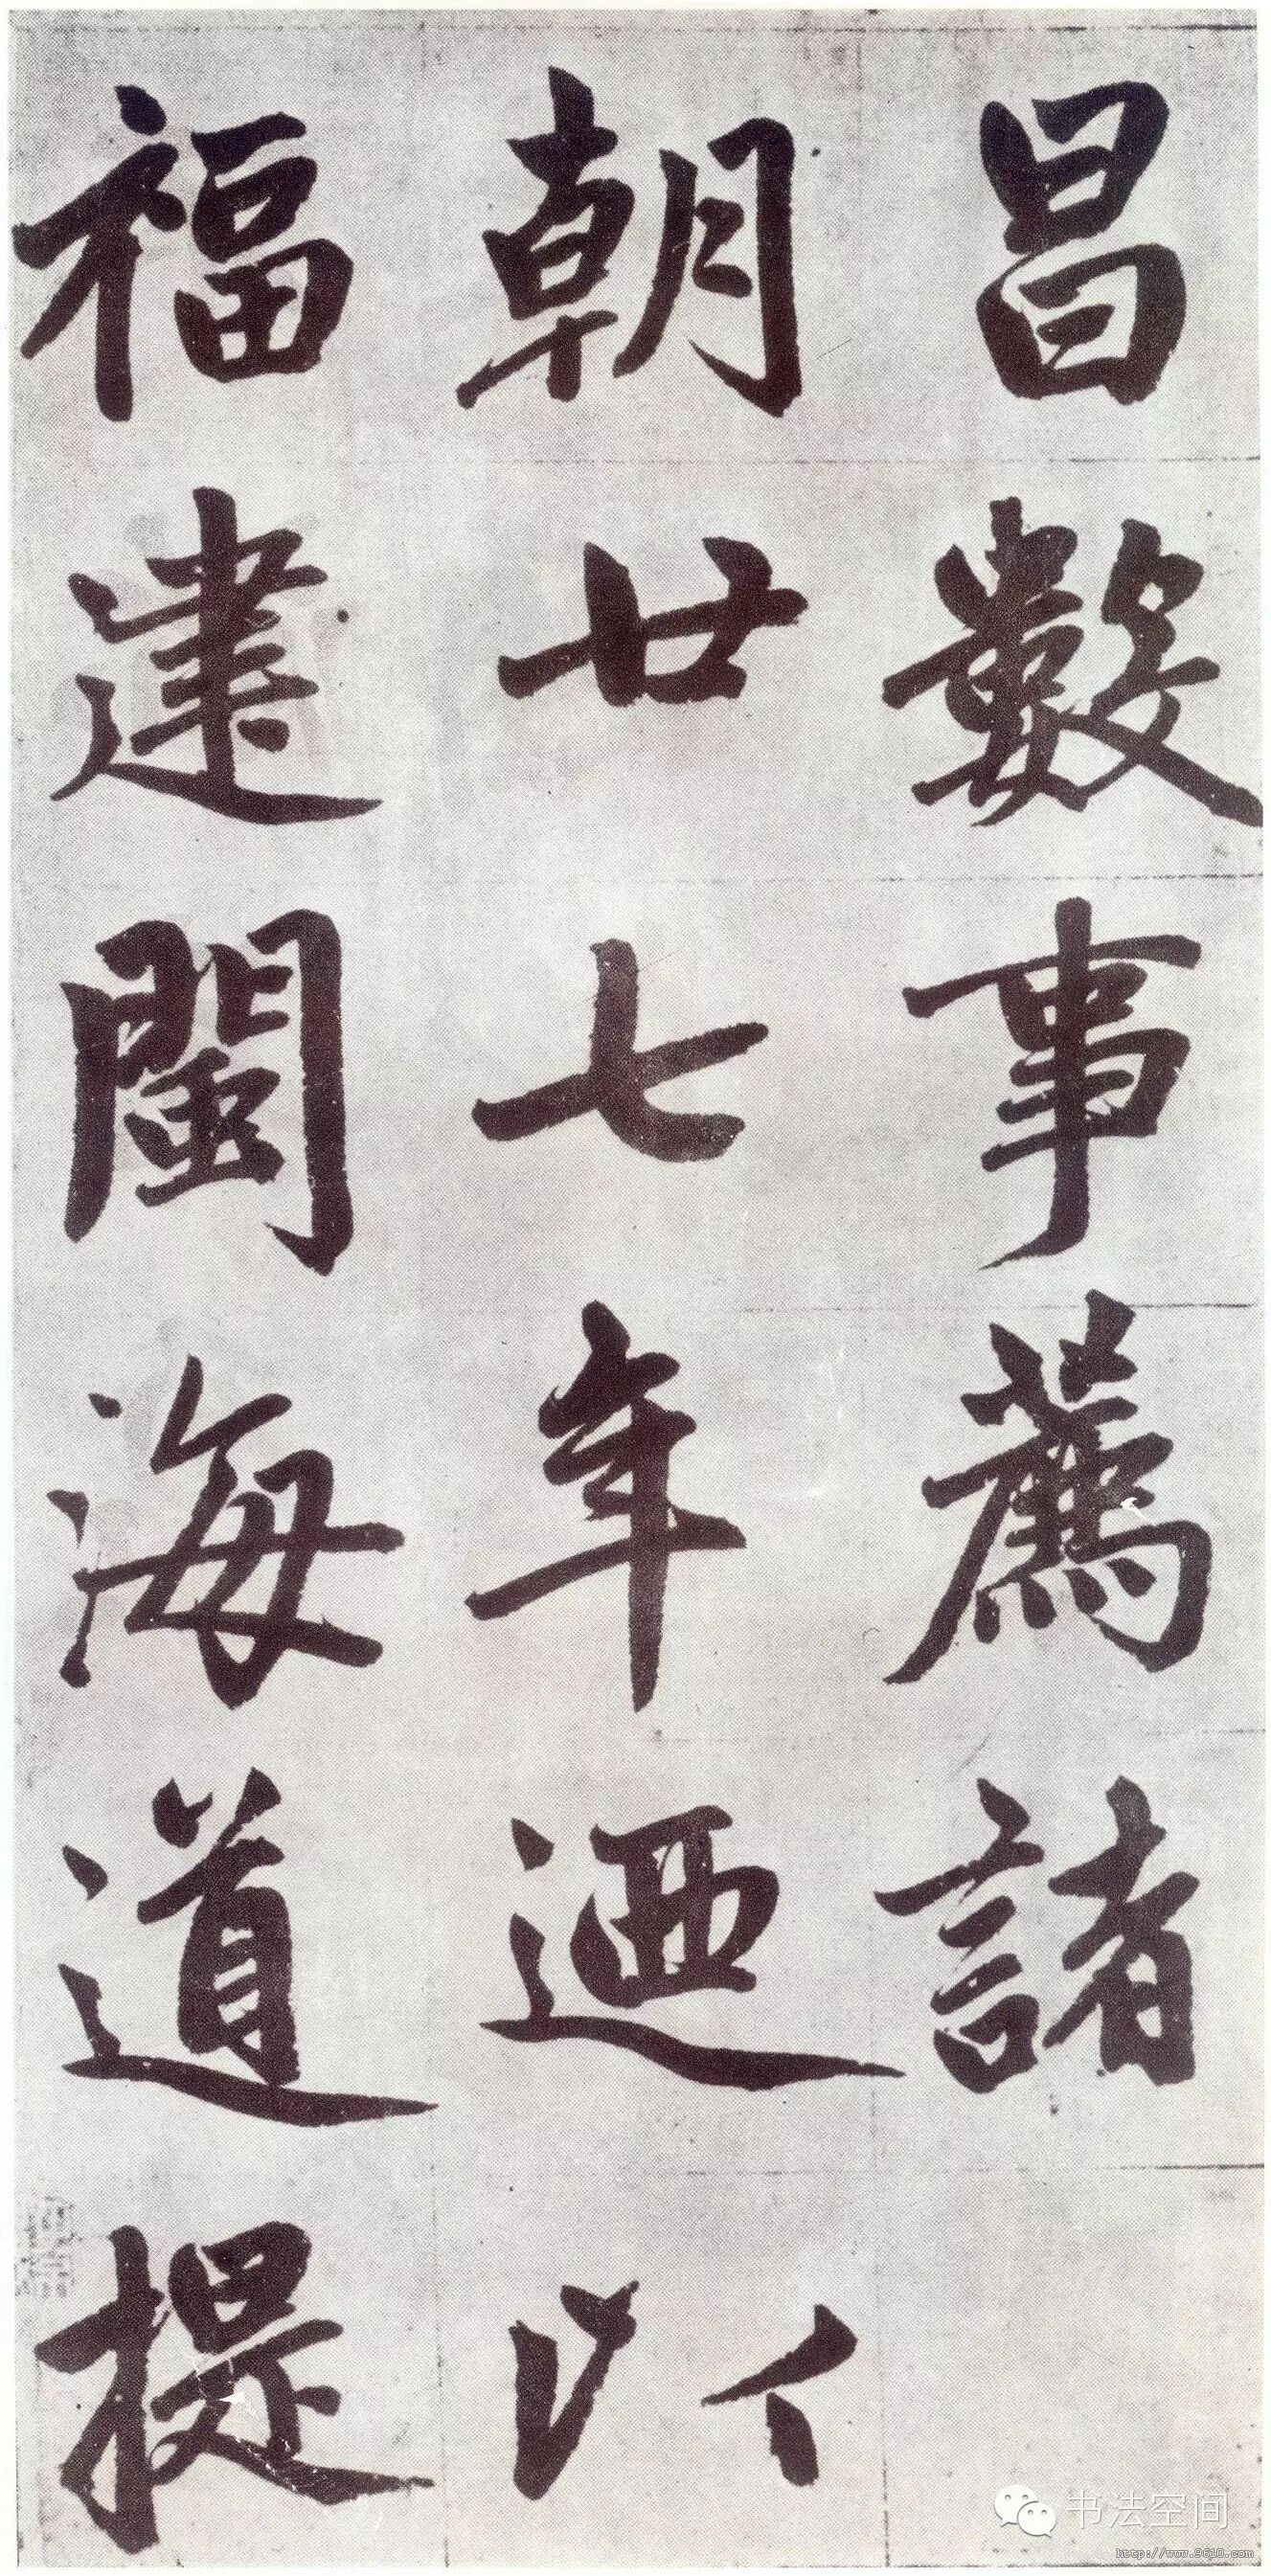 昌數事薦諸
朝廿七年迺以
福建閩海道提
书法空间
http://www.9610.com